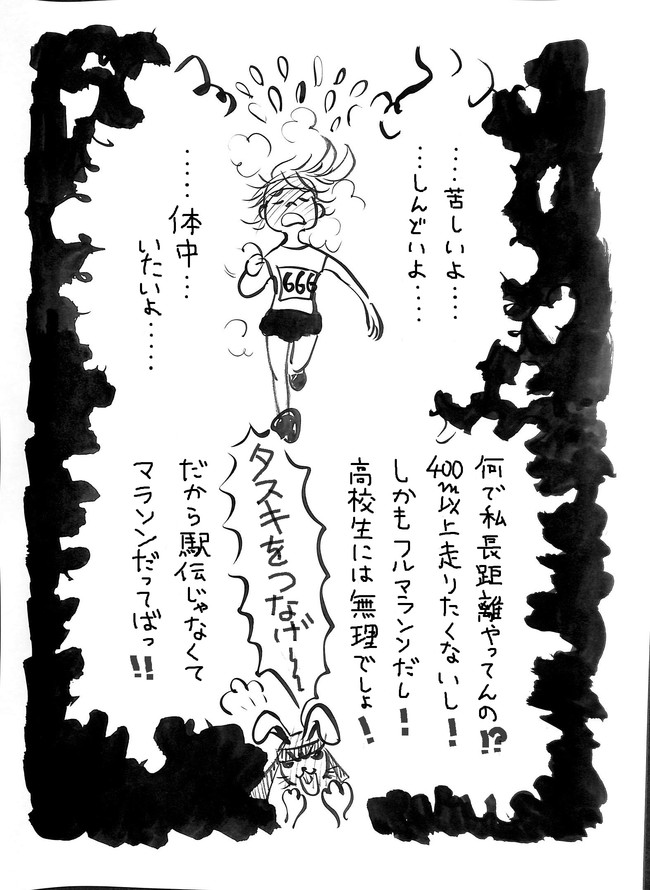 ‥‥苦しいよ‥‥
‥‥しんどいよ‥‥
‥‥‥体中‥‥
いたいよ‥‥‥
666
何で私長距離やってんの!?
400m以上走りたくないし!
しかもフルマラソンだし!
高校生には無理でしょ!
タスキをつなげ〜〜
だから駅伝じゃなくて
マラソンだってばっ!!